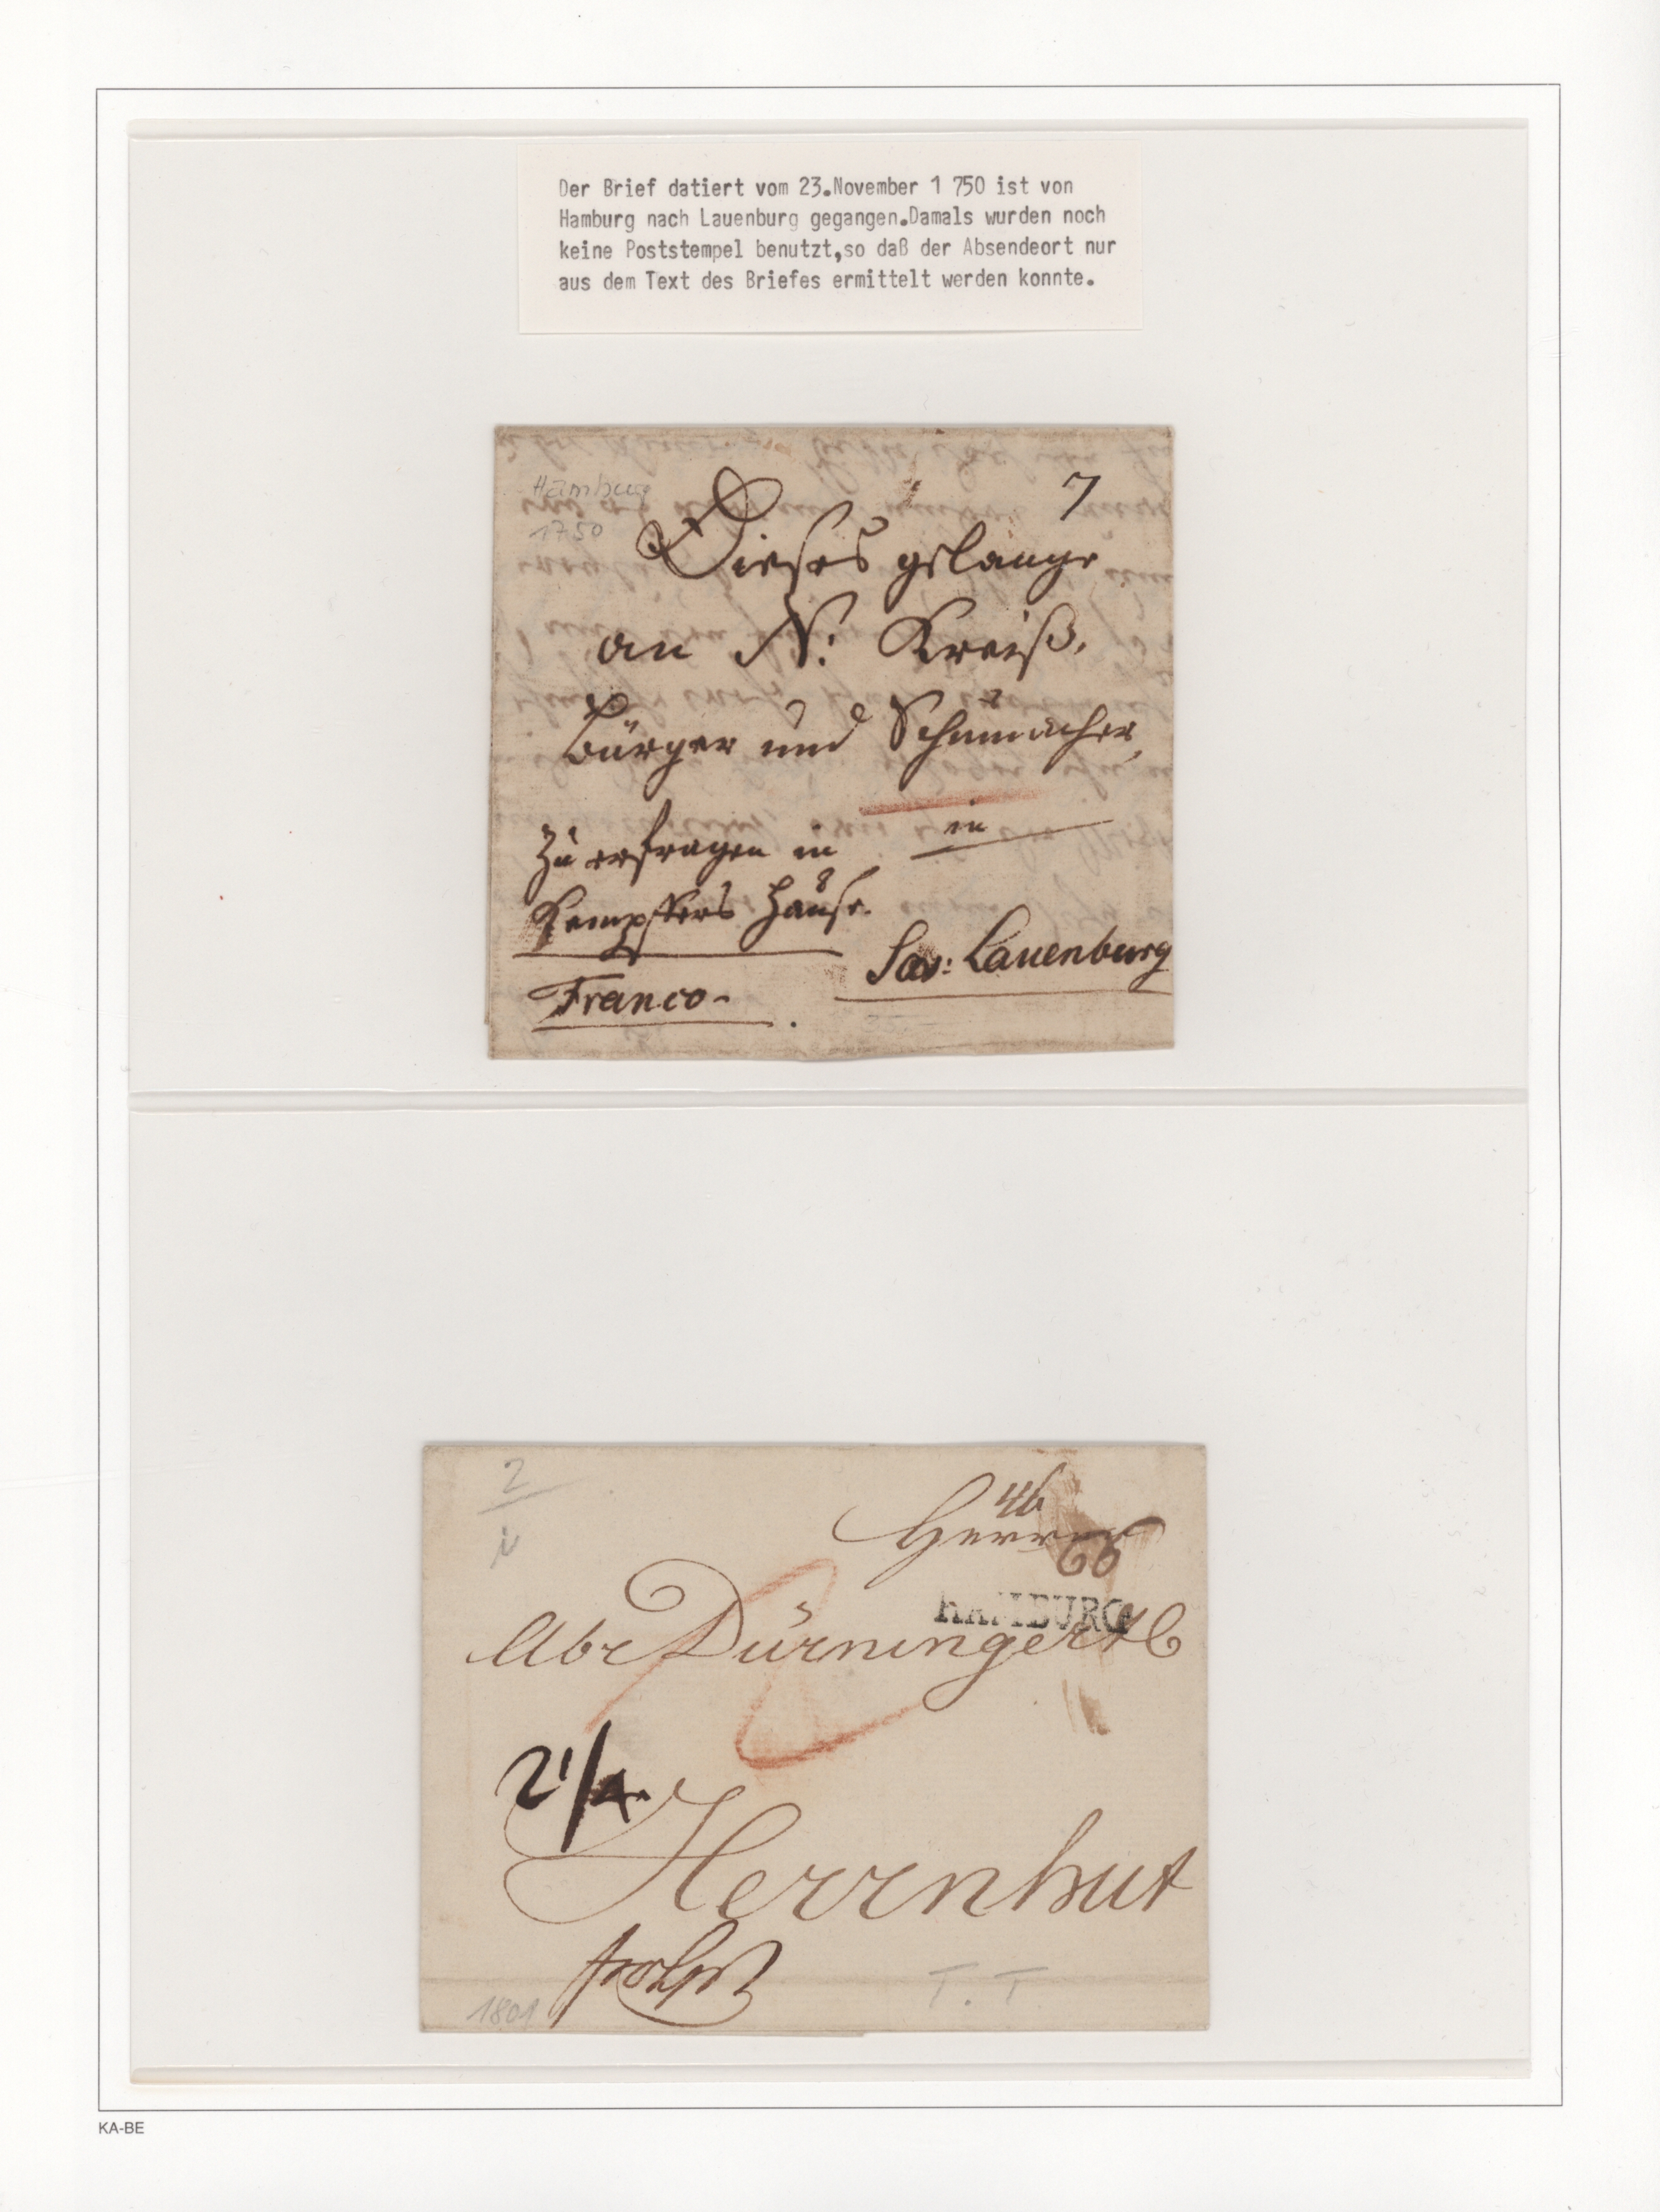 Der Brief datiert vom 23.November 1 750 ist von
Hamburg nach Lauenburg gegangen.Damals wurden noch
keine Poststempel benutzt,so daß der Absendeort nur
aus dem Text des Briefes ermittelt werden konnte.
Hamburg
1750
7
Dieses gelange
an N: Kreiß,
Bürger und Schumacher,
in
Zu erfragen in
Hause.
Lauenburg
Franco
2
46
Herren
66
HAMBURG
Abr Dürninger & C
2 1/4
Herrnhut
1801
T. T
KA-BE